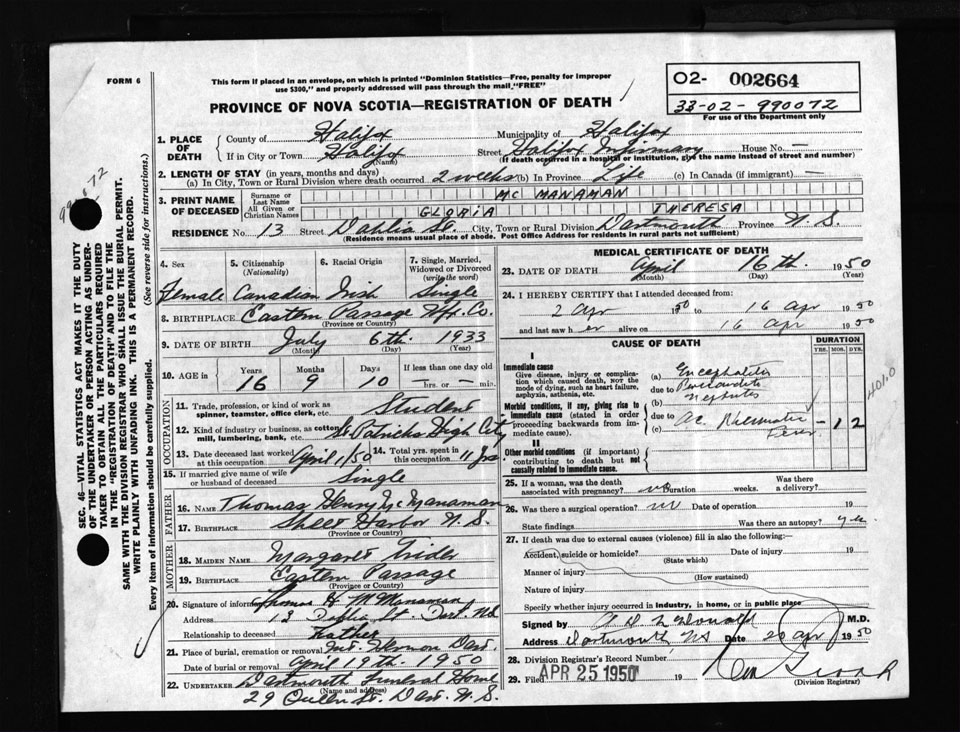 FORM 6
This form if placed in an envelope, on which is printed "Dominion Statistics—Free, penalty for improper
use $300," and properly addressed will pass through the mail, "FREE"
PROVINCE OF NOVA SCOTIA—REGISTRATION OF DEATH
02- 002664
33-02-990072
For use of the Department only
1. PLACE OF DEATH
County of Halifax Municipality of Halifax
If in City or Town Halifax (Name) Street Halifax Infirmary House No. —
(If death occurred in a hospital or institution, give the name instead of street and number)
2. LENGTH OF STAY (in years, months and days)
(a) In City, Town or Rural Division where death occurred 2 weeks (b) In Province Life (c) In Canada (if immigrant) —
3. PRINT NAME OF DECEASED
Surname or Last Name MC MANAMAN
All Given or Christian Names GLORIA THERESA
RESIDENCE No. 13 Street Dahlia St. City, Town or Rural Division Dartmouth Province N.S.
(Residence means usual place of abode. Post Office Address for residents in rural parts not sufficient)
4. Sex Female
5. Citizenship (Nationality) Canadian
6. Racial Origin Irish
7. Single, Married, Widowed or Divorced (write the word) Single
8. BIRTHPLACE Eastern Passage Hfx. Co.
(Province or Country)
9. DATE OF BIRTH July 6th. 1933
(Month) (Day) (Year)
10. AGE in Years 16 Months 9 Days 10 If less than one day old — hrs. or — min.
OCCUPATION
11. Trade, profession, or kind of work as spinner, teamster, office clerk, etc. Student
12. Kind of industry or business, as cotton mill, lumbering, bank, etc. St Patricks High City
13. Date deceased last worked at this occupation April 1/50 14. Total yrs. spent in this occupation 11 yrs
15. If married give name of wife or husband of deceased Single
FATHER
16. NAME Thomas Henry McManaman
17. BIRTHPLACE Sheet Harbor N.S.
(Province or Country)
MOTHER
18. MAIDEN NAME Margaret
19. BIRTHPLACE Eastern Passage
(Province or Country)
20. Signature of informant Thomas H McManaman
Address 13 Dahlia St. Dart. N.S.
Relationship to deceased Father
21. Place of burial, cremation or removal Mt. Hermon Dart.
Date of burial or removal April 19th. 1950
22. UNDERTAKER Dartmouth Funeral Home
(Name and address)
29 Queen St. Dart. N.S.
MEDICAL CERTIFICATE OF DEATH
23. DATE OF DEATH April 16th 1950
(Month) (Day) (Year)
24. I HEREBY CERTIFY that I attended deceased from:
2 Apr 1950 to 16 Apr 1950
and last saw her alive on 16 Apr 1950
CAUSE OF DEATH
DURATION
YRS. MOS. DYS.
I
Immediate cause
Give disease, injury or complication which caused death, NOT the mode of dying, such as heart failure, asphyxia, asthenia, etc.
(a) Encephalitis
due to Pericarditis
(b) Nephritis
Morbid conditions, if any, giving rise to immediate cause (stated in order proceeding backwards from immediate cause).
due to
(c) Ac. Rheumatic Fever — 12
II
Other morbid conditions (if important) contributing to death but not causally related to immediate cause.
401.0
25. If a woman, was the death associated with pregnancy? no Duration weeks. Was there a delivery?
26. Was there a surgical operation? no Date of operation 19
State findings Was there an autopsy? yes
27. If death was due to external causes (violence) fill in also the following:—
Accident, suicide or homicide? Date of injury 19
(State which)
Manner of injury
(How sustained)
Nature of injury
Specify whether injury occurred in industry, in home, or in public place
Signed by M.D.
Address Dartmouth NS Date 20 Apr 1950
28. Division Registrar's Record Number
29. Filed APR 25 1950 19
(Division Registrar)
SEC. 46—VITAL STATISTICS ACT MAKES IT THE DUTY
OF THE UNDERTAKER OR PERSON ACTING AS UNDER-
TAKER TO OBTAIN ALL THE PARTICULARS REQUIRED
IN THE "REGISTRATION OF DEATH" AND TO FILE THE
SAME WITH THE DIVISION REGISTRAR WHO SHALL ISSUE THE BURIAL PERMIT.
WRITE PLAINLY WITH UNFADING INK. THIS IS A PERMANENT RECORD.
Every item of information should be carefully supplied. (See reverse side for instructions.)